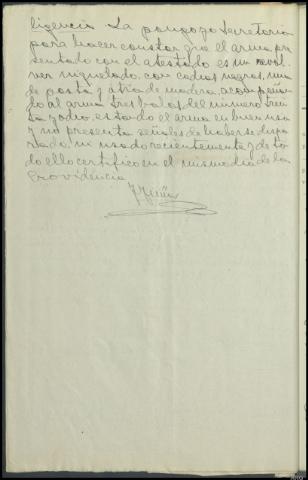 ligencia La pongo yo Secretario
para hacer constar que el arma pre
sentada con el atestado es un revol
ver niquelado, con cachas negras, una
de pasta y otra de madera, acompañan
do al arma tres balas del numero trein
ta y ocho, estando el arma en buen uso
y no presenta señales de haberse dispa
rado, ni usado recientemente y de to
do ello certifico en el mismo dia de la
Providencia